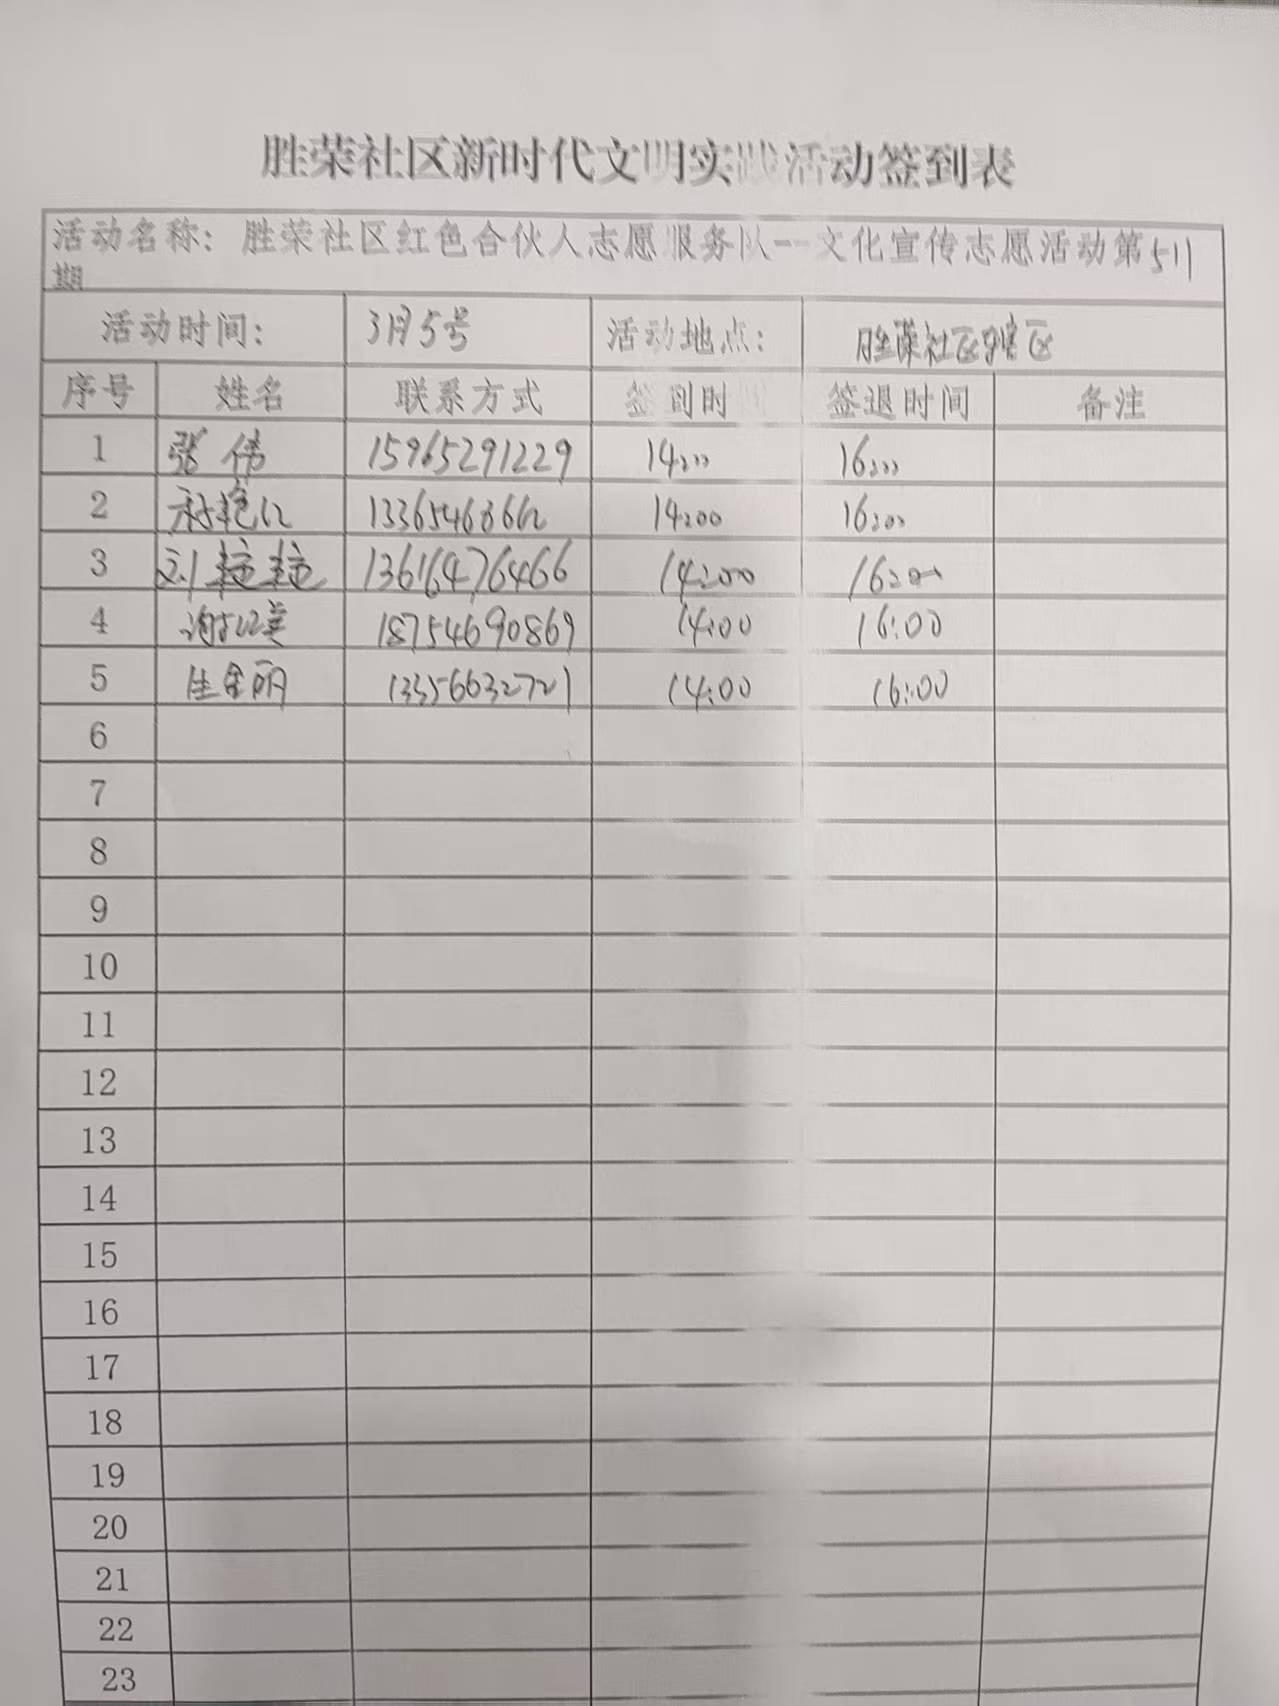 胜荣社区新时代文明实践活动签到表
活动名称：胜荣社区红色合伙人志愿服务队--文化宣传志愿活动第511
期
活动时间： 3月5号 活动地点： 胜荣社区辖区
序号 姓名 联系方式 签到时 签退时间 备注
1 张伟 15965291229 14:00 16:00
2 14:00 16:00
3 刘 13616476466 14:00 16:00
4 18754690869 14:00 16:00
5 金丽 13356632721 14:00 16:00
6
7
8
9
10
11
12
13
14
15
16
17
18
19
20
21
22
23